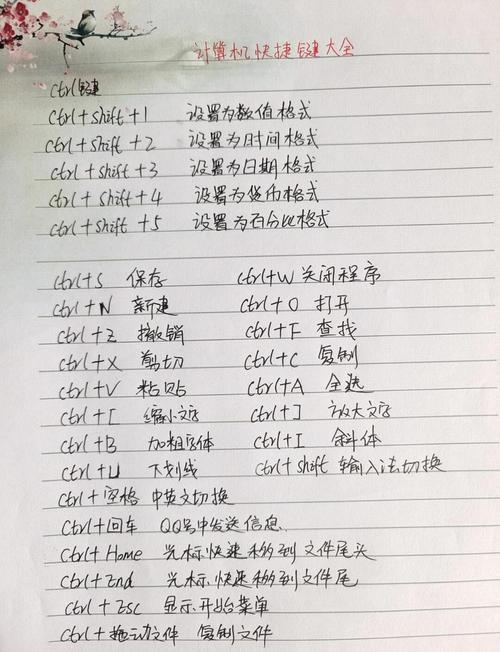 计算机快捷键大全
ctrl键
ctrl+shift+1 设置为数值格式
ctrl+shift+2 设置为时间格式
ctrl+shift+3 设置为日期格式
ctrl+shift+4 设置为货币格式
ctrl+shift+5 设置为百分比格式
ctrl+S 保存 ctrl+W 关闭程序
ctrl+N 新建 ctrl+O 打开
ctrl+Z 撤销 ctrl+F 查找
ctrl+X 剪切 ctrl+C 复制
ctrl+V 粘贴 ctrl+A 全选
ctrl+[ 缩小文字 ctrl+] 放大文字
ctrl+B 加粗字体 ctrl+I 斜体
ctrl+U 下划线 ctrl+shift 输入法切换
ctrl+空格 中英文切换
ctrl+回车 QQ号中发送信息
ctrl+Home 光标快速移到文件尾头
ctrl+End 光标快速移到文件尾
ctrl+Esc 显示开始菜单
ctrl+拖动文件 复制文件